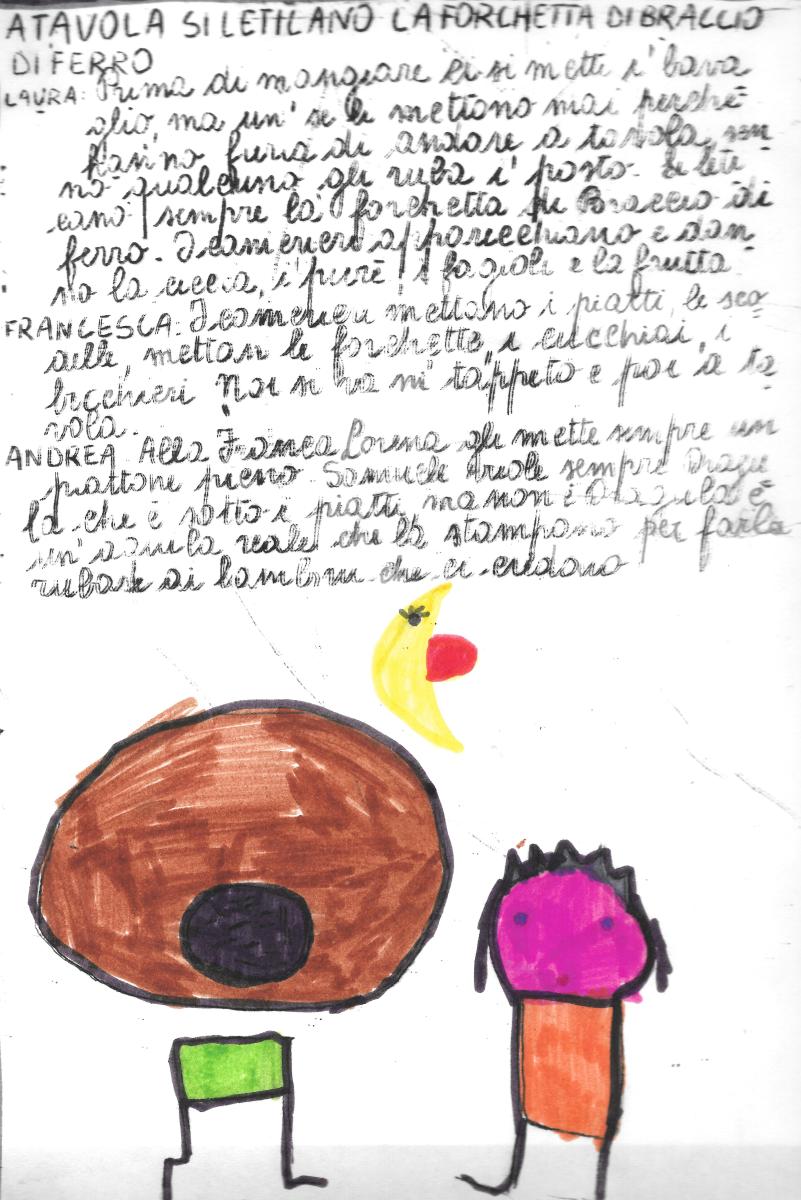 A TAVOLA SI LETILANO LA FORCHETTA DI BRACCIO
DI FERRO
LAURA: Prima di mangiare ci si mette i' bava
glio, ma un' se li mettono mai perché
hanno furia di andare a tavola, sen
nò qualcuno gli ruba i' posto. Si leti
cano sempre la forchetta di Braccio di
ferro. I camerieri apparecchiano e dan
no la ciccia, i' purè, i fagioli e la frutta
FRANCESCA: I camerieri mettano i piatti, le sco
delle, mettan le forchette, i cucchiai, i
bicchieri Noi si va ni' tappeto e poi a ta
vola.
ANDREA Alla Franca Lorena gli mette sempre un
piattone pieno. Samuele vuole sempre Dragu
la che è sotto i piatti, ma non è Dragula è
un' aquila reale che la stampano per farla
rubare ai bambini che ci credano